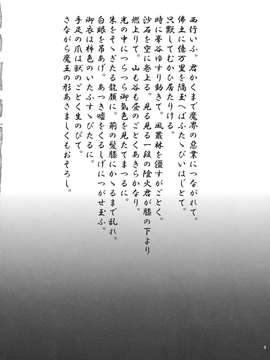 西行いふ。君かくまで魔界の悪業につながれて。
佛土に億万里を隔玉へばふたゝびいはじとて。
只黙してむかひ居たりける。
時に峯谷ゆすり動きて。風叢林を僵すがごとく。
沙石を空に巻上る。見る見る一段の陰火君が膝の下より
燃上りて。山も谷も昼のごとくあきらかなり。
光の中につらつら御気色を見たてまつるに。
朱をそゝぎたる龍顔に。荊の髪膝にかゝるまで乱れ。
白眼を吊あげ。あつき嘘をくるしげにつがせ玉ふ。
御衣は柿色のいたふすゝびたるに。
手足の爪は獣のごとく生のびて。
さながら魔王の形あさましくもおそろし。